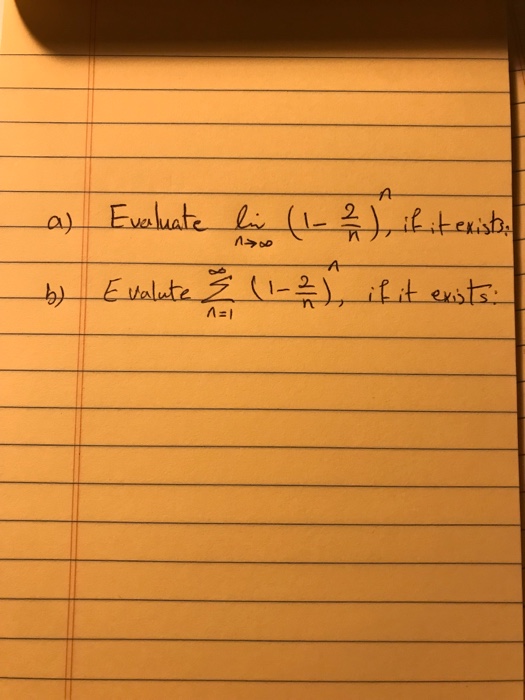 a) Evaluate lim (1 - 2/n)^n, if it exists.
n→∞
b) Evalute ∞∑n=1 (1 - 2/n)^n, if it exists: